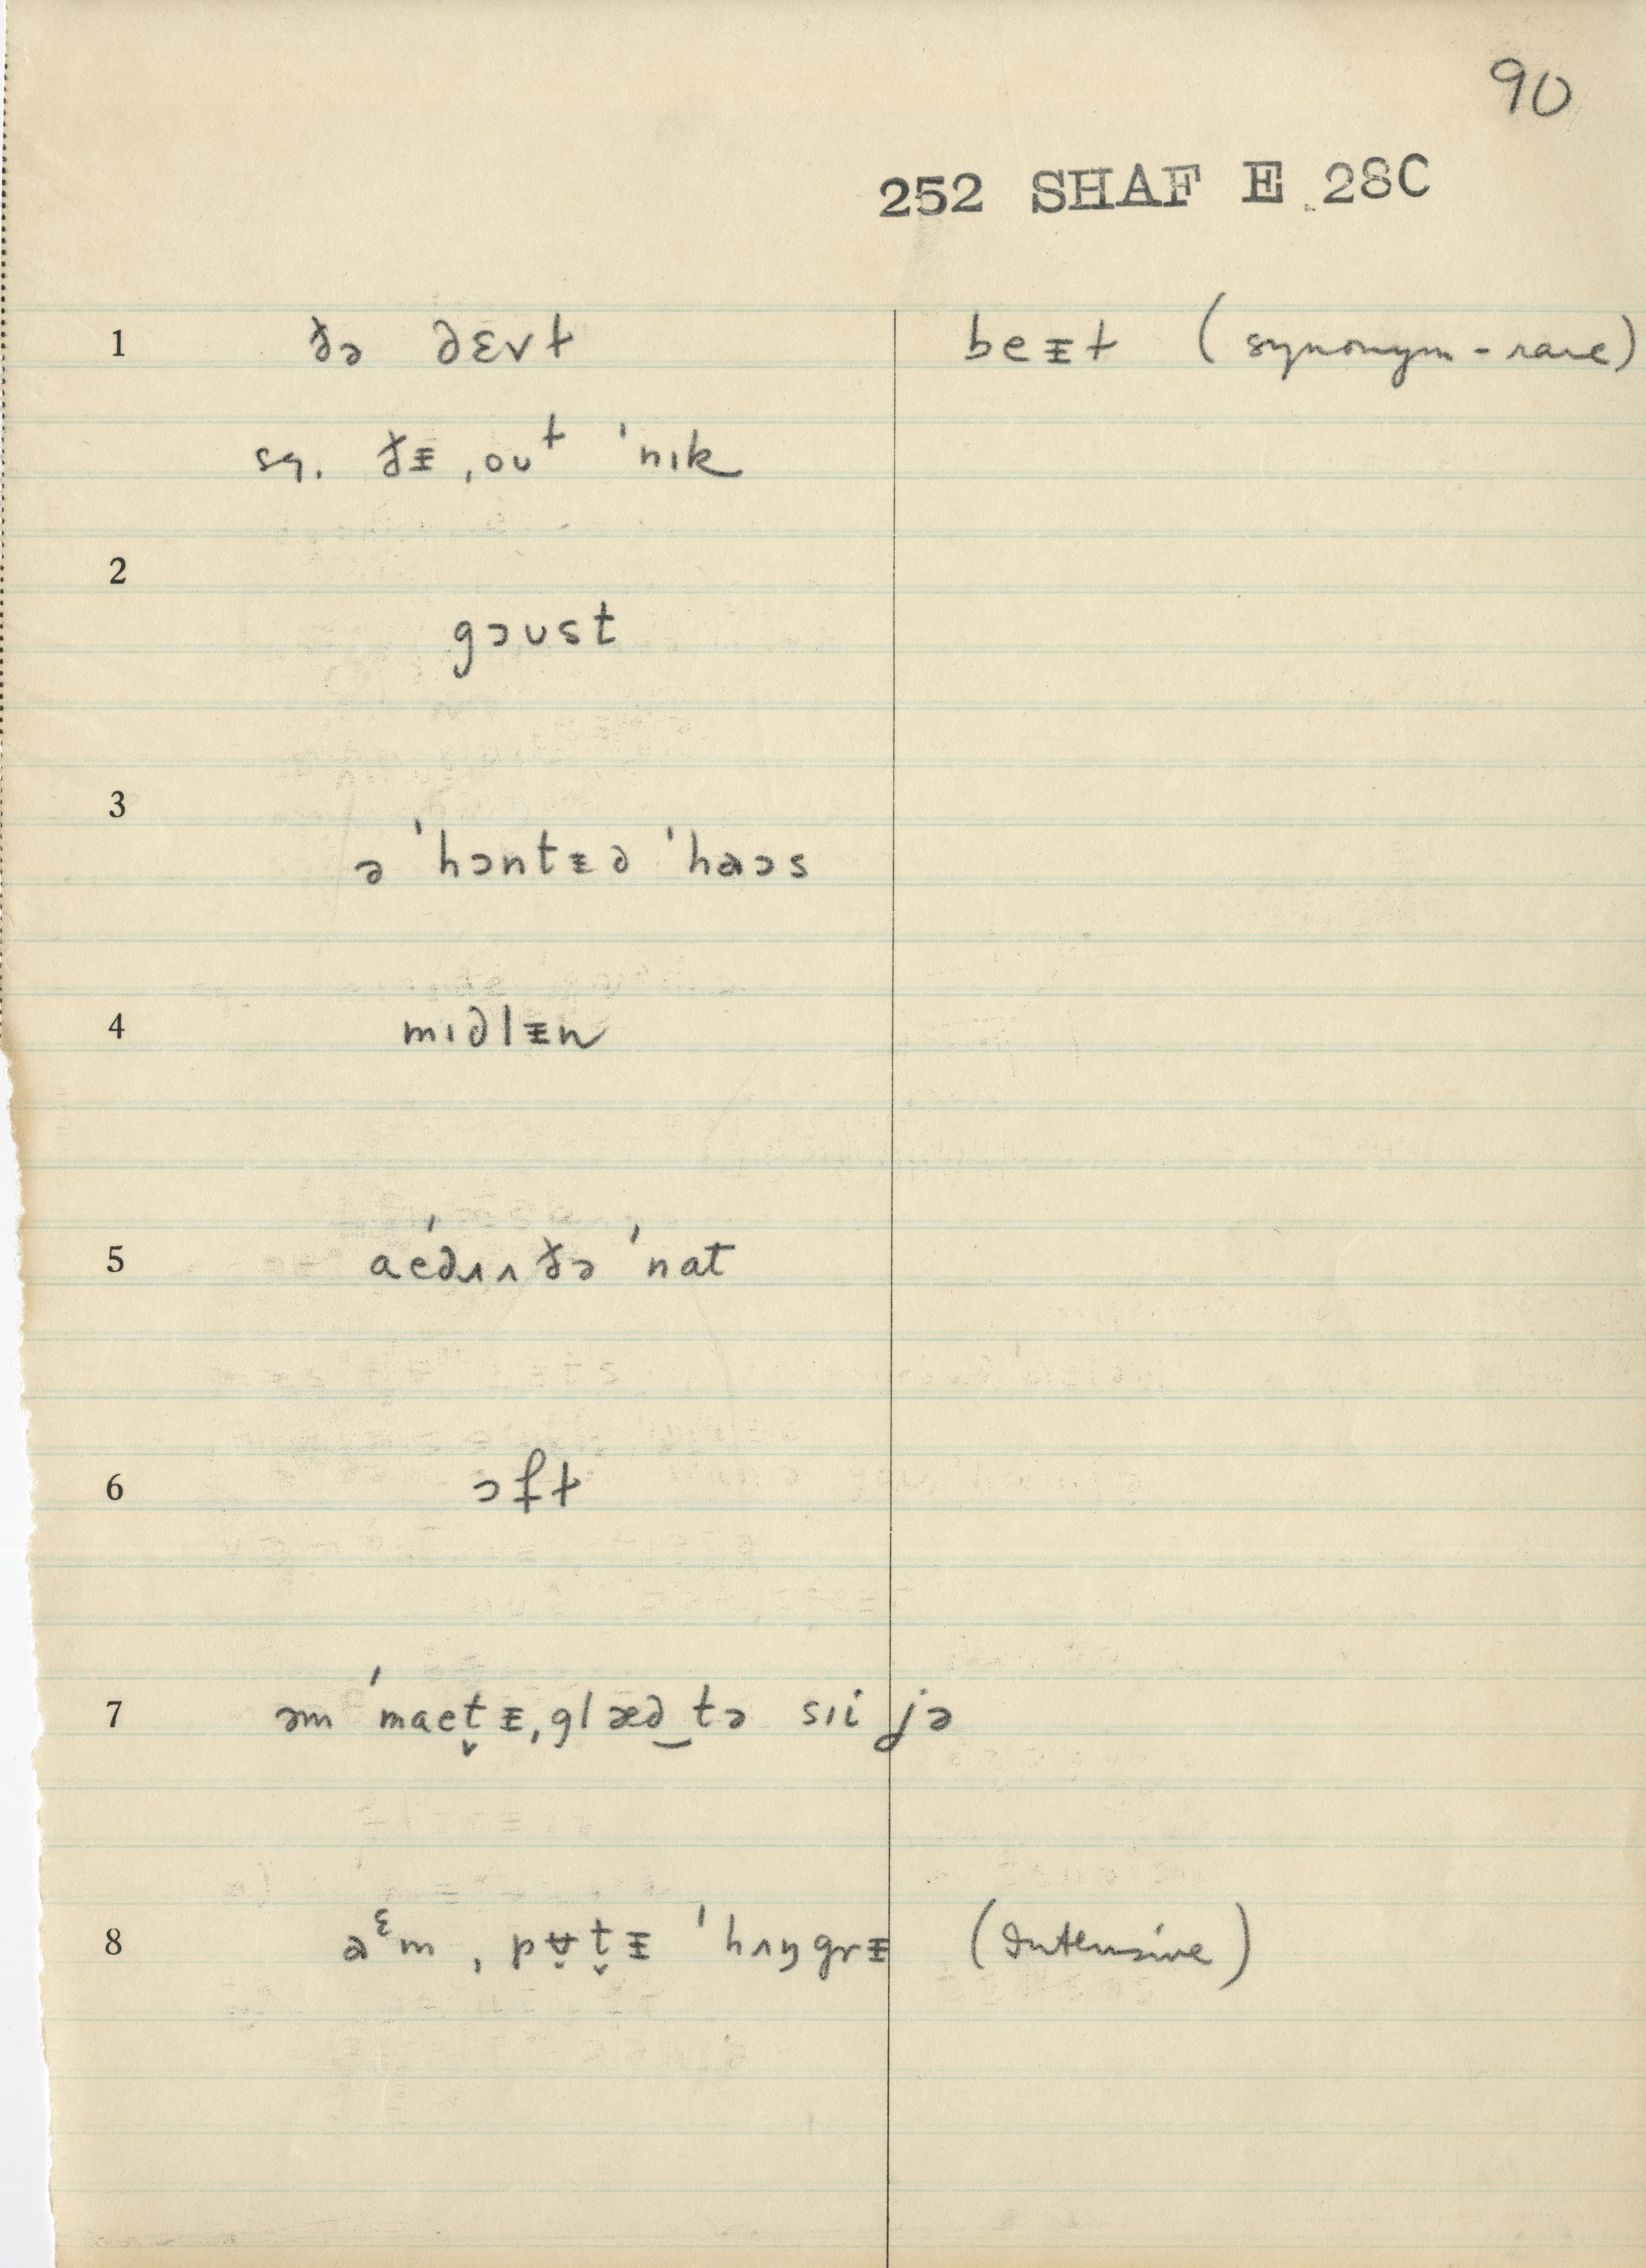 90
252 SHAF E 28C
1 ðə dɛvɫ beᵻɫ (synonym - rare)
sq. ðᵻ ˌouɫ ˈnɪk
2
gɔust
3
ə ˈhɔntᵻd ˈhaɔs
4 mɪdlᵻn
5 aeˈdʌɪ ðə ˈnat
6 ɔfɫ
7 əm ˈmaet̬ᵻˌglæd‿tə sɪi jə
8 aᵋm ˌpʊt̬ᵻ ˈhʌŋgrᵻ (Intensive)